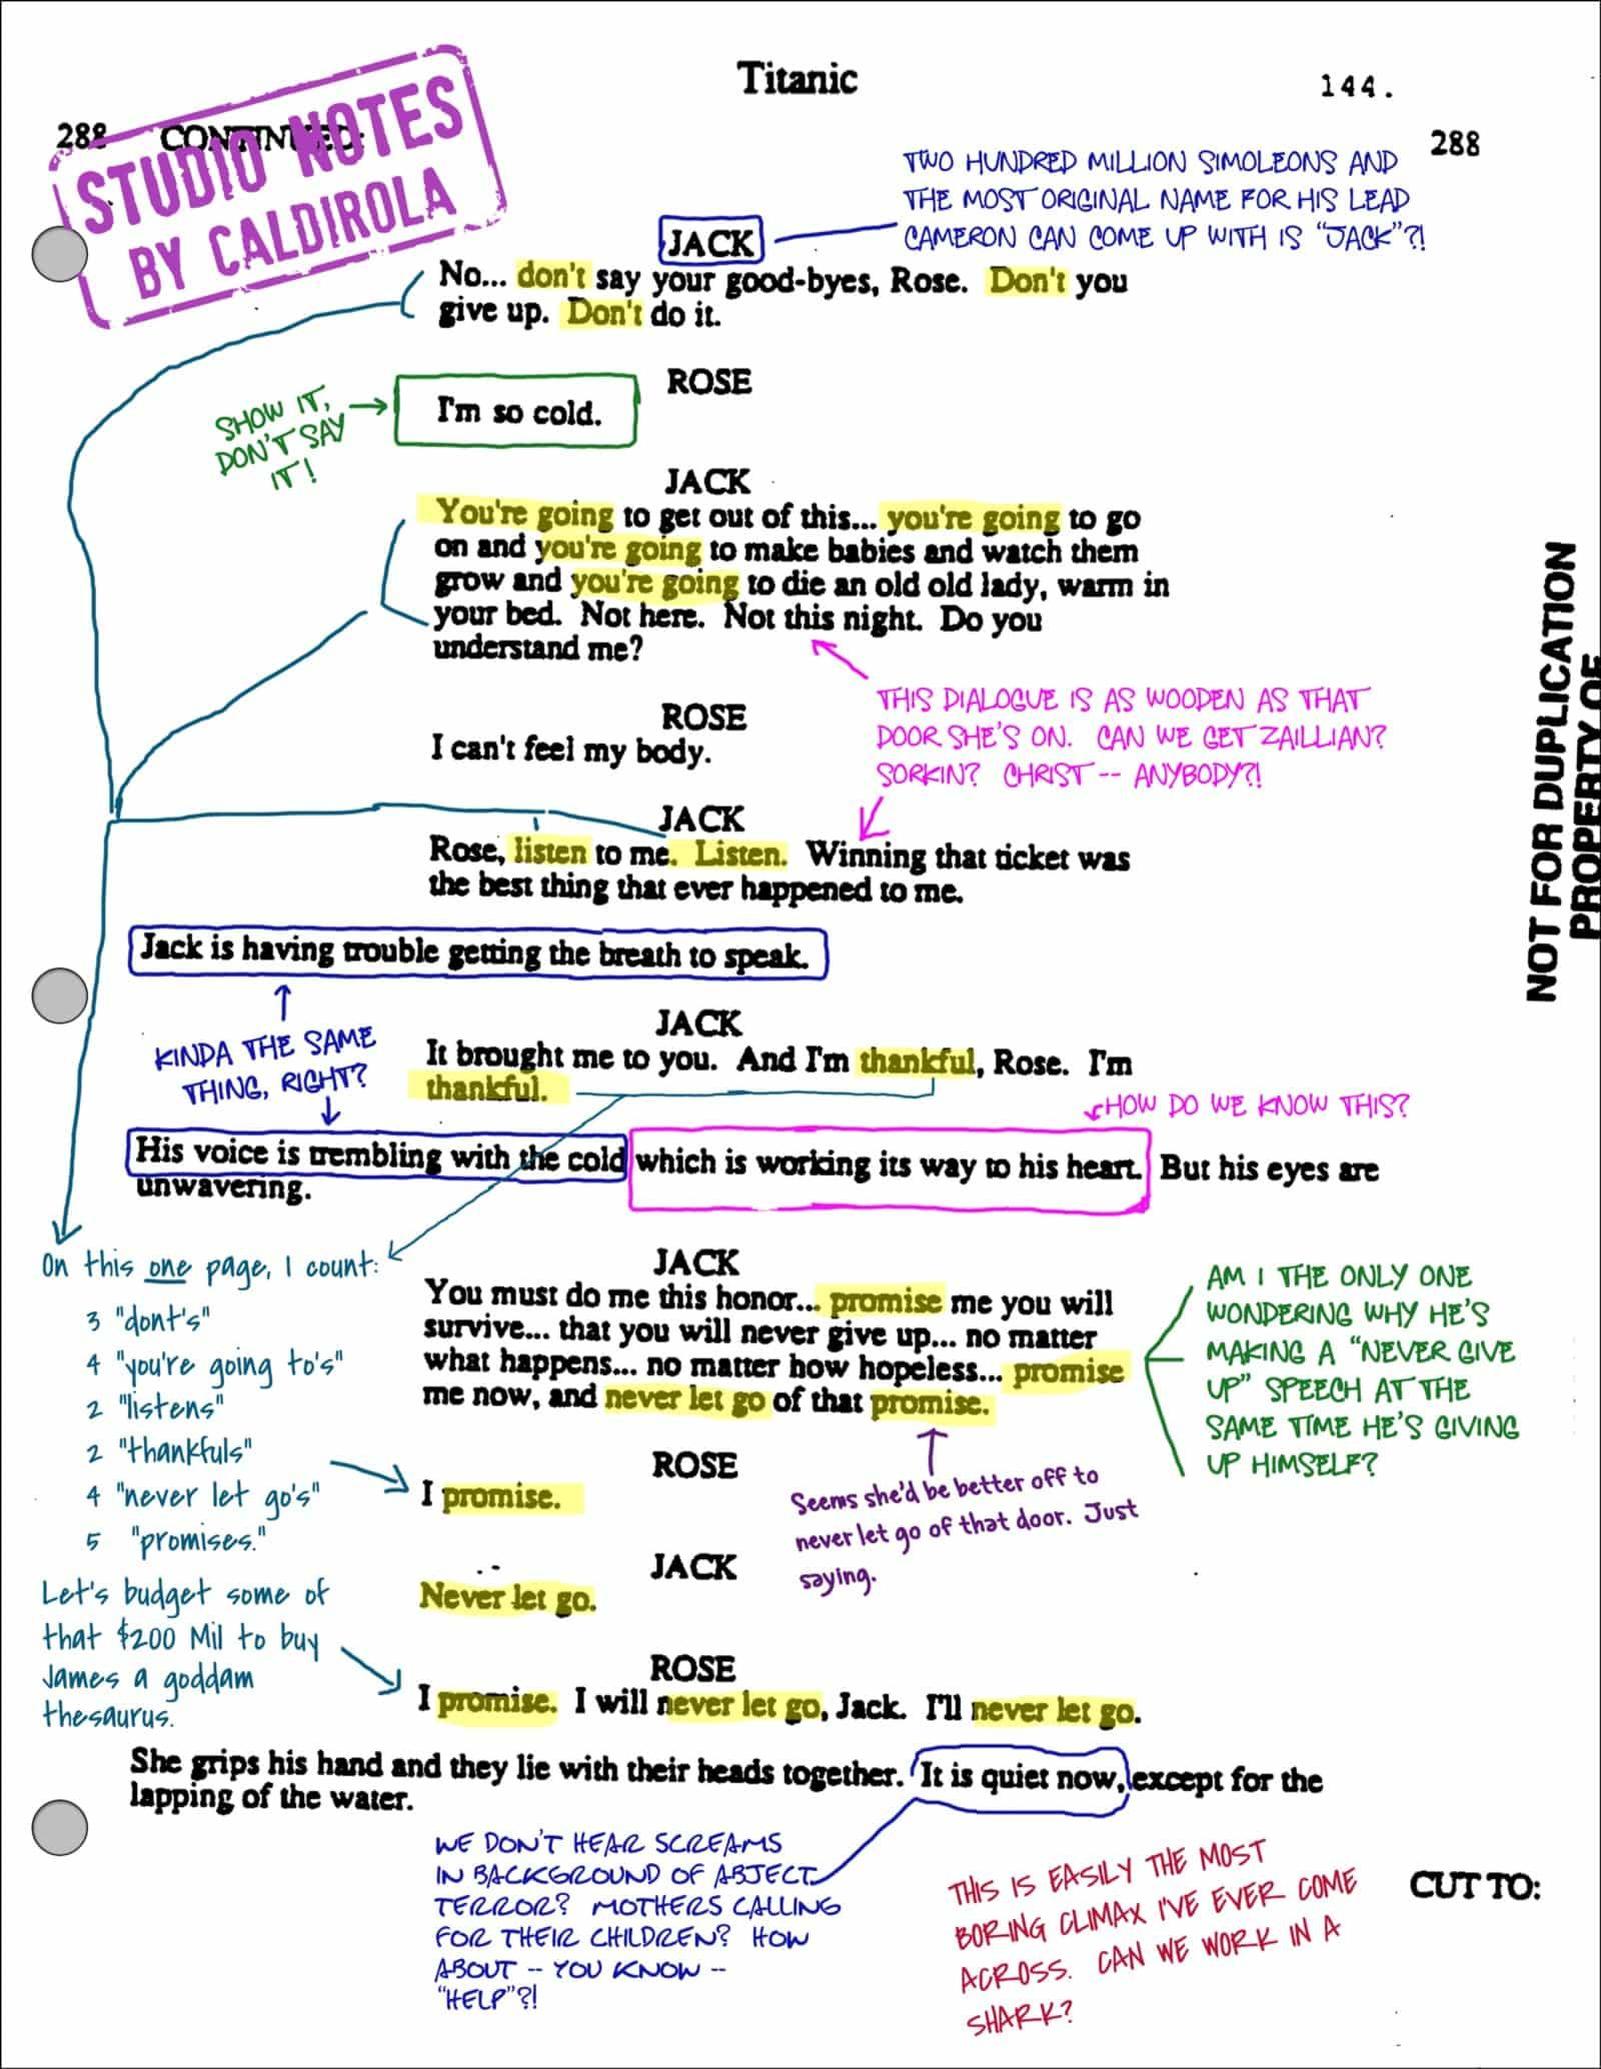 Titanic
144.
288 CONTINUED:
288
STUDIO NOTES
BY CALDIROLA
TWO HUNDRED MILLION SIMOLEONS AND
THE MOST ORIGINAL NAME FOR HIS LEAD
CAMERON CAN COME UP WITH IS "JACK"?!
JACK
No... don't say your good-byes, Rose. Don't you
give up. Don't do it.
ROSE
SHOW IT,
DON'T SAY
IT!
I'm so cold.
JACK
You're going to get out of this... you're going to go
on and you're going to make babies and watch them
grow and you're going to die an old old lady, warm in
your bed. Not here. Not this night. Do you
understand me?
THIS DIALOGUE IS AS WOODEN AS THAT
DOOR SHE'S ON. CAN WE GET ZAILLIAN?
SORKIN? CHRIST -- ANYBODY?!
ROSE
I can't feel my body.
JACK
Rose, listen to me. Listen. Winning that ticket was
the best thing that ever happened to me.
NOT FOR DUPLICATION
PROPERTY OF
Jack is having trouble getting the breath to speak.
KINDA THE SAME
THING, RIGHT?
JACK
It brought me to you. And I'm thankful, Rose. I'm
thankful.
HOW DO WE KNOW THIS?
His voice is trembling with the cold which is working its way to his heart. But his eyes are
unwavering.
On this one page, I count:
3 "dont's"
4 "you're going to's"
2 "listens"
2 "thankfuls"
4 "never let go's"
5 "promises."
Let's budget some of
that $200 Mil to buy
James a goddam
thesaurus.
JACK
You must do me this honor... promise me you will
survive... that you will never give up... no matter
what happens... no matter how hopeless... promise
me now, and never let go of that promise.
AM I THE ONLY ONE
WONDERING WHY HE'S
MAKING A "NEVER GIVE
UP" SPEECH AT THE
SAME TIME HE'S GIVING
UP HIMSELF?
ROSE
I promise.
Seems she'd be better off to
never let go of that door. Just
saying.
JACK
Never let go.
ROSE
I promise. I will never let go, Jack. I'll never let go.
She grips his hand and they lie with their heads together. It is quiet now, except for the
lapping of the water.
WE DON'T HEAR SCREAMS
IN BACKGROUND OF ABJECT
TERROR? MOTHERS CALLING
FOR THEIR CHILDREN? HOW
ABOUT -- YOU KNOW --
"HELP"?!
THIS IS EASILY THE MOST
BORING CLIMAX I'VE EVER COME
ACROSS. CAN WE WORK IN A
SHARK?
CUT TO: